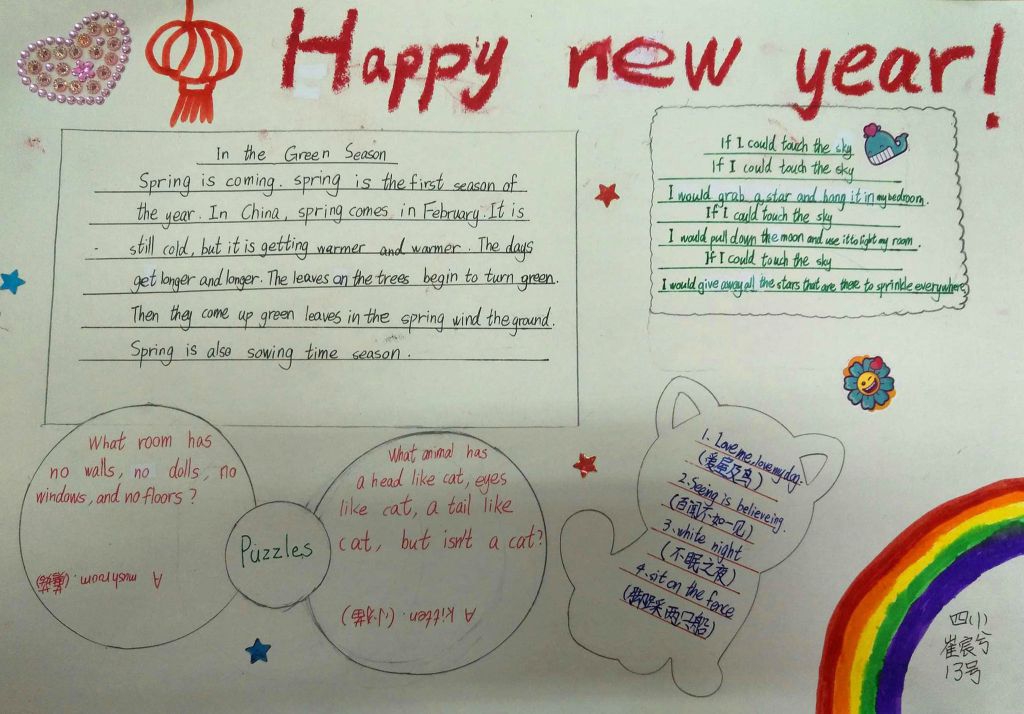 Happy new year!
In the Green Season
Spring is coming. spring is the first season of
the year. In China, spring comes in February. It is
still cold, but it is getting warmer and warmer. The days
get longer and longer. The leaves on the trees begin to turn green.
Then they come up green leaves in the spring wind the ground.
Spring is also sowing time season.
If I could touch the sky
If I could touch the sky
I would grab a star and hang it in my bedroom.
If I could touch the sky
I would pull down the moon and use it to light my room.
If I could touch the sky
I would give away all the stars that are there to sprinkle everywhere
What room has
no walls, no dolls, no
windows, and no floors?
A mushroom. (蘑菇)
Puzzles
What animal has
a head like cat, eyes
like cat, a tail like
cat, but isn't a cat?
A kitten. (小猫)
1. Love me, love my dog.
(爱屋及乌)
2. Seeing is believeing.
(百闻不如一见)
3. white night
(不眠之夜)
4. sit on the fence
(脚踩两只船)
四小
崔宸兮
13号